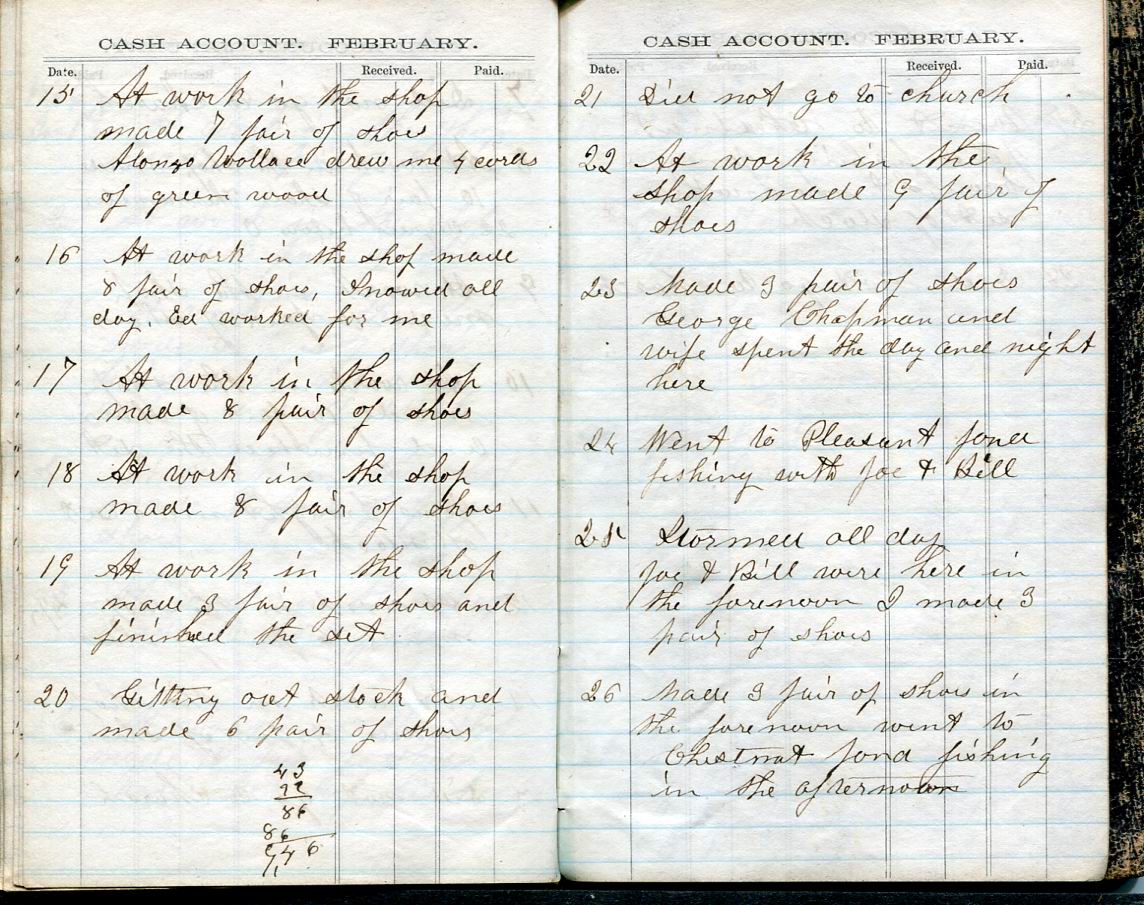 CASH ACCOUNT. FEBRUARY.
Date. Received. Paid.
15 At work in the shop
made 7 pair of shoes
Alonzo Wallace drew me 4 cords
of green wood
16 At work in the shop made
8 pair of shoes, Snowed all
day. Ed worked for me
17 At work in the shop
made 8 pair of shoes
18 At work in the shop
made 8 pair of shoes
19 At work in the shop
made 3 pair of shoes and
finished the set
20 Gitting out stock and
made 6 pair of shoes
43
22
86
86
946
CASH ACCOUNT. FEBRUARY.
Date. Received. Paid.
21 Did not go to church
22 At work in the
shop made 9 pair of
shoes
23 Made 3 pair of shoes
George Chapman and
wife spent the day and night
here
24 Went to Pleasant pond
fishing with Joe & Bill
25 Stormed all day
Joe & Bill were here in
the forenoon I made 3
pair of shoes
26 Made 3 pair of shoes in
the forenoon went to
Chestnut pond fishing
in the afternoon